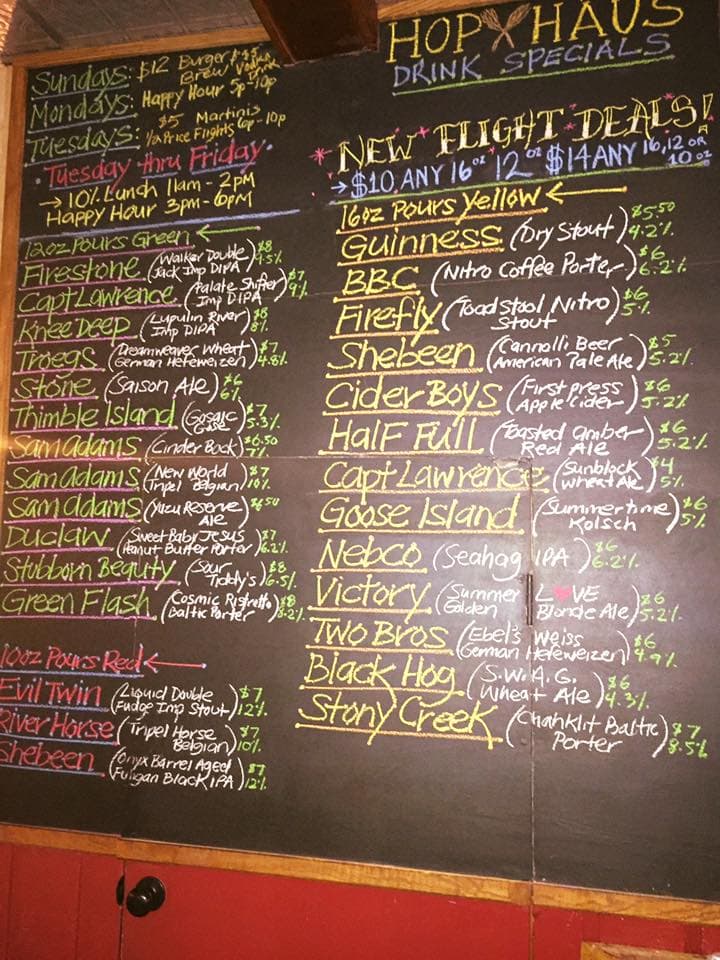 HOP HAUS
DRINK SPECIALS
Sundays: $12 Burger $ $5
Brew Vodka
Drink
Mondays: Happy Hour 5p-10p
Tuesdays: $5 Martinis
1/2 Price Flights 6p-10p
Tuesday thru Friday
→ 10% Lunch 11am - 2pm
Happy Hour 3pm - 6pm
NEW FLIGHT DEALS!
→ $10, ANY 16oz 12oz $14 ANY 16, 12 OR 10oz
12oz Pours Green ←
Firestone (Walker Double Jack Imp DIPA) $8 9.5%
Capt Lawrence (Palate Shifter Imp DIPA) $7 9%
Knee Deep (Lupulin River Imp DIPA) $8 8%
Troegs (Dreamweaver Wheat German Hefeweizen) $7 4.8%
Stone (Saison Ale) $6 6%
Thimble Island (Gosaic Gose) $7 5.3%
Sam Adams (Cinder Bock) $6.50
Sam Adams (New World Tripel Belgian) $7 10%
Sam Adams (Yuzu Reserve Ale) $6.50
Duclaw (Sweet Baby Jesus Peanut Butter Porter) $7 6.2%
Stubborn Beauty (Sour Tiddy's) $8 6.5%
Green Flash (Cosmic Ristretto Baltic Porter) $8 8.2%
10oz Pours Red ←
Evil Twin (Liquid Double Fudge Imp Stout) $7 12%
River Horse (Tripel Horse Belgian) $7 10%
Shebeen (Onyx Barrel Aged Fuligan Black IPA) $7 12%
16oz Pours Yellow ←
Guinness (Dry Stout) $5.50 4.2%
BBC (Nitro Coffee Porter) $6 6.2%
Firefly (Toad Stool Nitro Stout) $6 5%
Shebeen (Cannolli Beer American Pale Ale) $5 5.2%
Cider Boys (First press Apple Cider) $6 5.2%
Half Full (Toasted amber Red Ale) $6 5.2%
Capt Lawrence (Sunblock Wheat Ale) $4 5%
Goose Island (Summertime Kolsch) $6 5%
Nebco (Seahag IPA) $6 6.2%
Victory (Summer LOVE Golden Blonde Ale) $6 5.2%
Two Bros (Ebel's Weiss German Hefeweizen) $6 4.9%
Black Hog (S.W.A.G. Wheat Ale) $6 4.3%
Stony Creek (Chanklit Baltic Porter) $7 8.5%